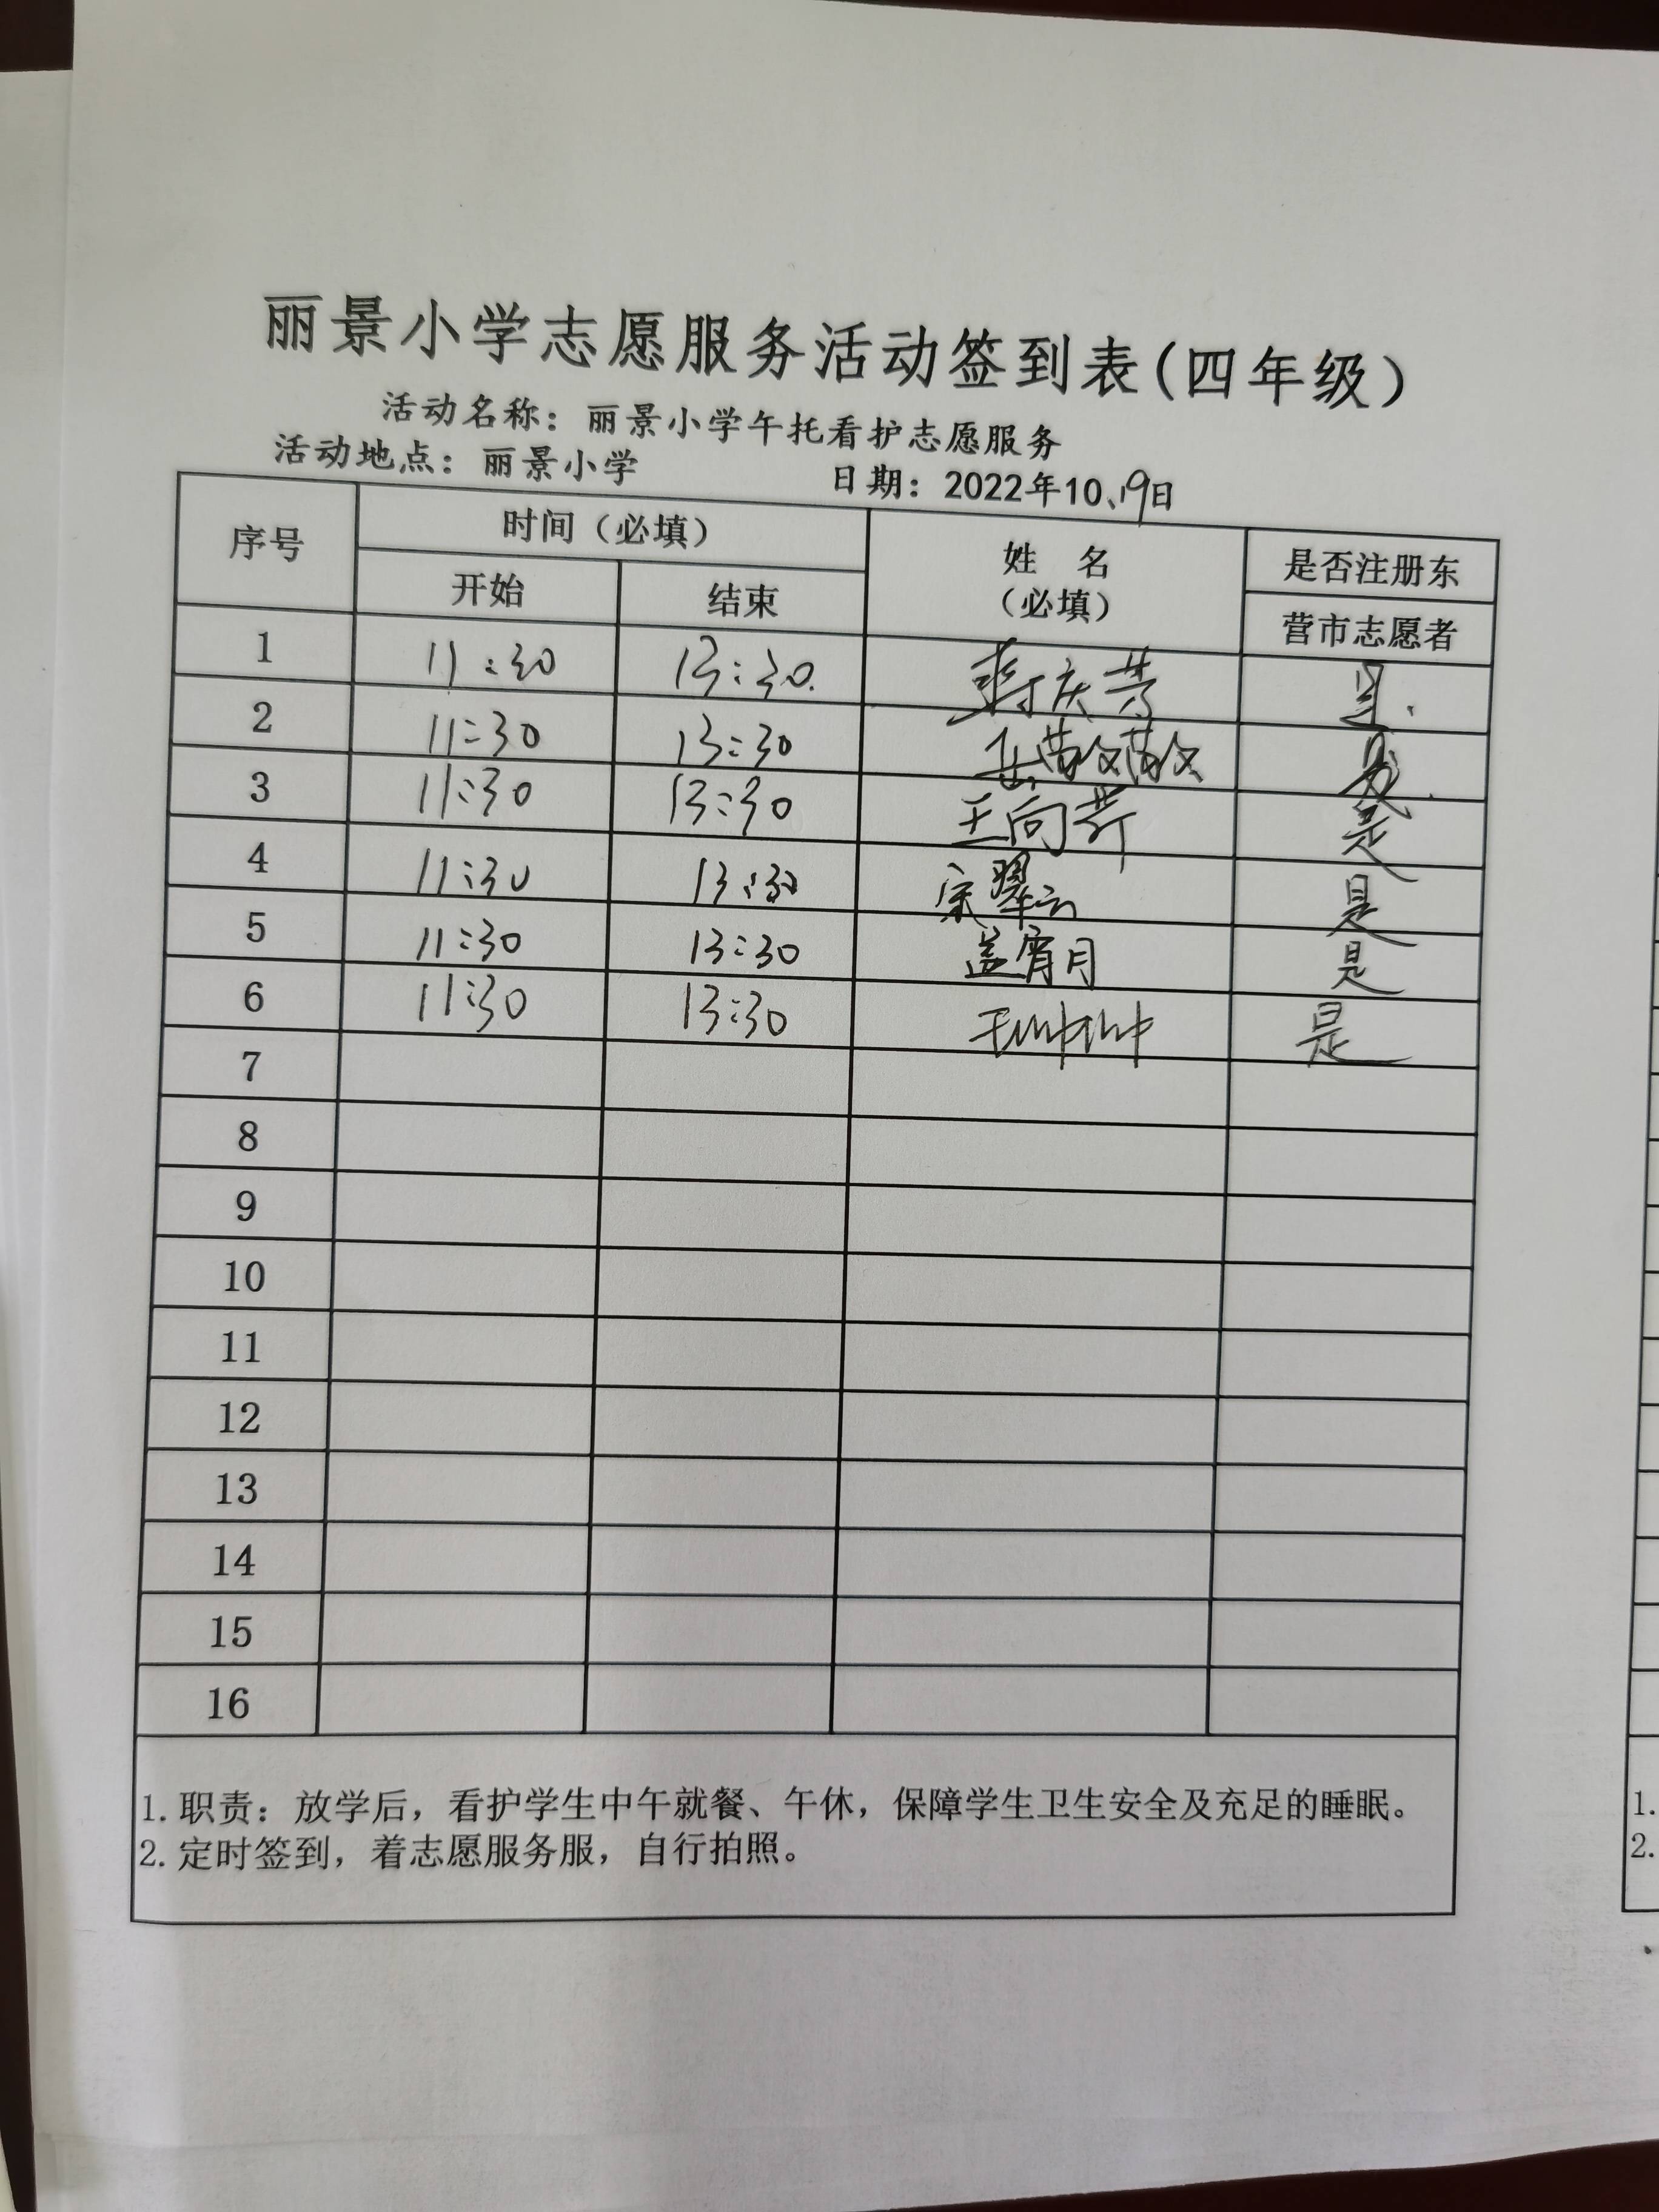 丽景小学志愿服务活动签到表(四年级)
活动名称：丽景小学午托看护志愿服务
活动地点：丽景小学 日期：2022年10、19日
序号 时间（必填） 姓 名（必填） 是否注册东营市志愿者
开始 结束
1 11:30 13:30. 庆芳 是.
2 11:30 13:30
3 11:30 13:30 王向芹 是
4 11:30 13:30 宋翠云 是
5 11:30 13:30 盖宵月 是
6 11:30 13:30 王 是
7
8
9
10
11
12
13
14
15
16
1.职责：放学后，看护学生中午就餐、午休，保障学生卫生安全及充足的睡眠。
2.定时签到，着志愿服务服，自行拍照。
1.
2.